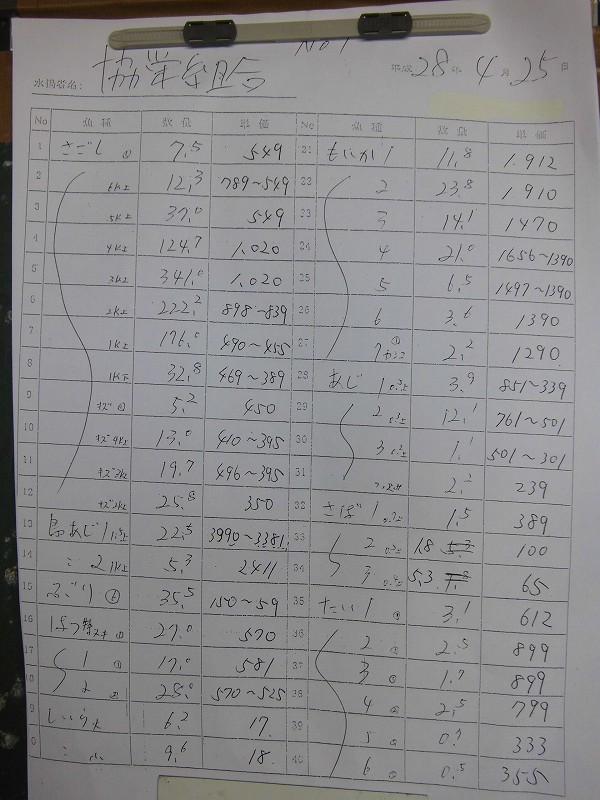 No 1
水揚者名: 協栄組合 平成 28 年 4 月 25 日
No 魚種 数量 単価 No 魚種 数量 単価
1 さごし 7.5 549 21 もいか 1 11.8 1.912
2 6K上 12.3 789~549 22 2 23.8 1910
3 5K上 37.0 549 23 3 14.1 1470
4 4K上 124.7 1,020 24 4 21.0 1656~1390
5 3K上 341.0 1,020 25 5 6.5 1497~1390
6 2K上 222.2 898~839 26 6 3.6 1390
7 1K上 176.0 490~455 27 7 2.2 1290
8 1K下 32.8 469~389 28 あじ 1 3.9 851~339
9 キズ 5.2 450 29 2 12.1 761~501
10 キズ4K上 13.0 410~395 30 3 1.1 501~301
11 キズ3K上 19.7 496~395 31 2.2 239
12 キズ2K上 25.8 350 32 さば 1 1.5 389
13 島あじ 1 22.5 3990~3381 33 2 1.8 100
14 〃 2 1K上 5.3 2411 34 3 5.3 65
15 ぶり 35.5 150~59 35 たい 1 3.1 612
16 27.0 570 36 2 2.5 899
17 1 17.0 581 37 3 1.7 899
18 2 25.0 570~525 38 4 2.5 799
9 しいら大 6.2 17 39 5 0.7 333
0 〃 小 9.6 18 40 6 0.5 355